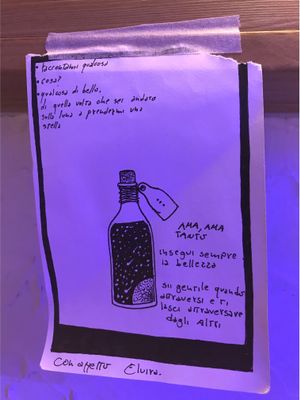 • raccontami qualcosa
• cosa?
• qualcosa di bello.
di quella volta che sei andato
sulla luna a prendermi una
stella
AMA, AMA
TANTO
insegui sempre
la bellezza
sii gentile quando
attraversi e ti
lasci attraversare
dagli altri
con affetto Elvira.